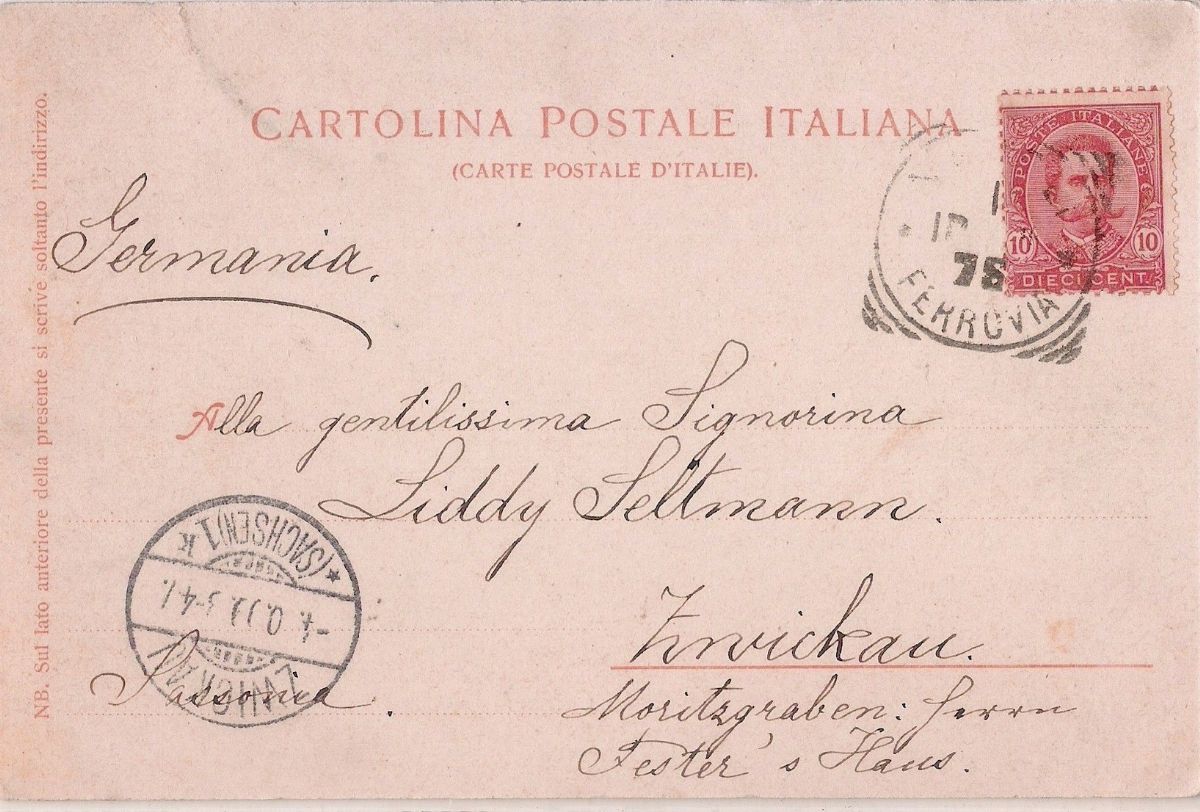 CARTOLINA POSTALE ITALIANA
(CARTE POSTALE D'ITALIE).
POSTE ITALIANE
10 10
DIECI CENT
75
FERROVIA
Germania.
Alla gentilissima Signorina
Liddy Seltmann.
Zwickau.
Moritzgraben: Herrn
Fester's Haus.
Sassonia.
ZWICKAU
(SACHSEN) 1 k
NB. Sul lato anteriore della presente si scrive soltanto l'indirizzo.